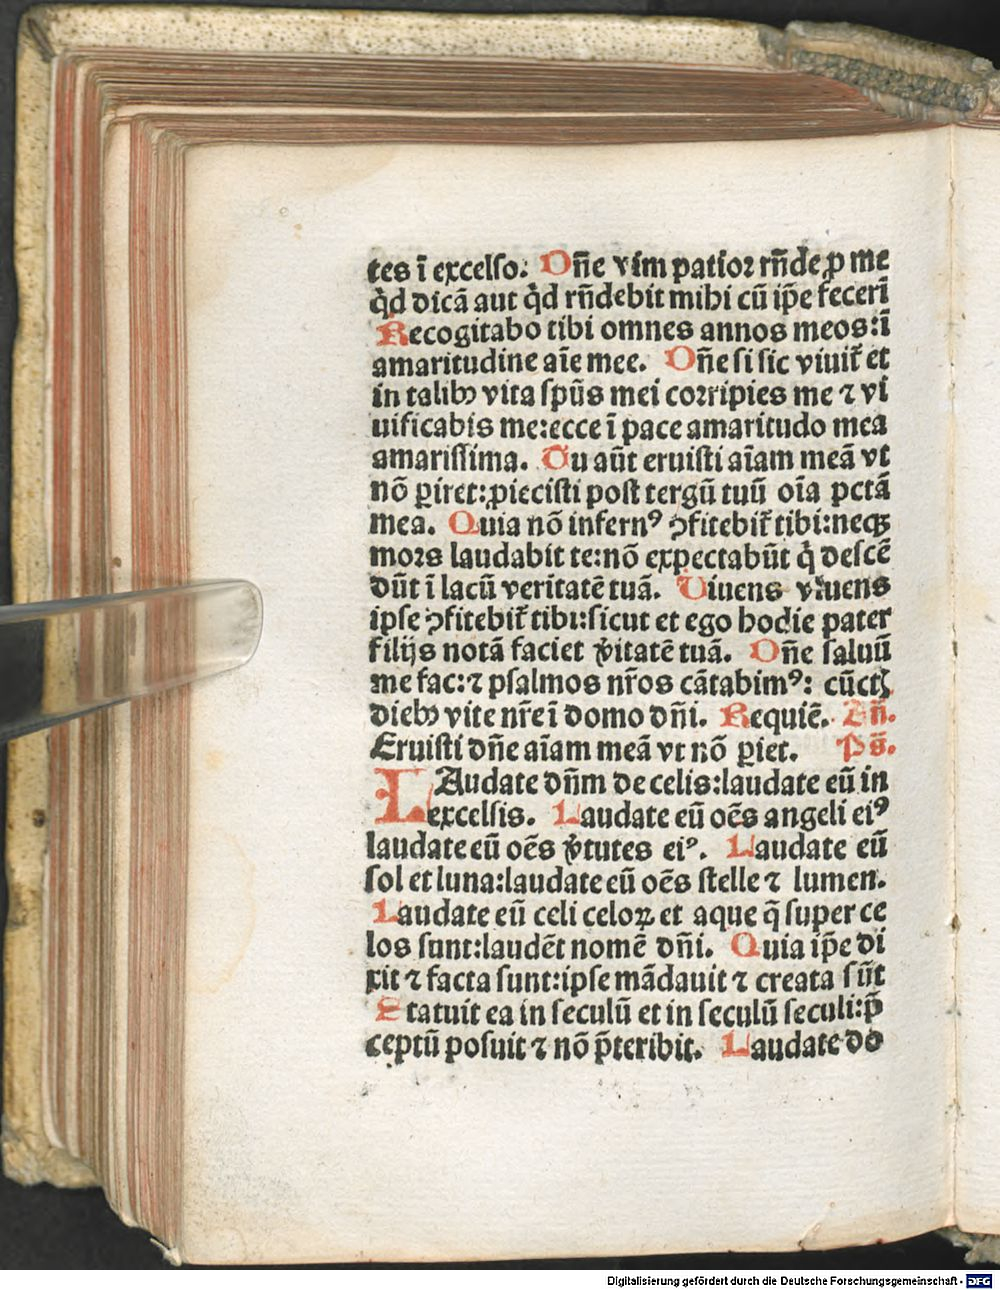 tes ī excelso. Dñe vim patior rñde ꝓ me
qͥd dicā aut qͥd rñdebit mihi cū ip̄e fecerī
Recogitabo tibi omnes annos meos:ī
amaritudine aīe mee. Dñe si sic viuit᷑ et
in talibꝰ vita spūs mei corripies me ⁊ vi
uificabis me:ecce ī pace amaritudo mea
amarissima. Tu aūt eruisti aīam meā vt
nō ꝑiret:ꝓiecisti post tergū tuū oīa pctā
mea. Quia nō infernꝰ ꝯfitebit᷑ tibi:neqꝫ
mors laudabit te:nō expectabūt qͥ descē
dūt ī lacū veritatē tuā. Viuens viuens
ipse ꝯfitebit᷑ tibi:sicut et ego hodie pater
filijs notā faciet v̓itatē tuā. Dñe saluū
me fac:⁊ psalmos nr̄os cātabimꝰ: cūctꝭ
diebꝰ vite nr̄e ī domo dñi. Requiē. Añ.
Eruisti dñe aīam meā vt nō ꝑiet. Ps̄.
LAudate dñm de celis:laudate eū in
excelsis. Laudate eū oēs angeli eiꝰ
laudate eū oēs v̓tutes eiꝰ. Laudate eū
sol et luna:laudate eū oēs stelle ⁊ lumen.
Laudate eū celi celoꝝ et aque q̄ super ce
los sunt:laudēt nomē dñi. Quia ip̄e di
xit ⁊ facta sunt:ipse mādauit ⁊ creata sūt
Statuit ea in seculū et in seculū seculi:p̄
ceptū posuit ⁊ nō p̄teribit. Laudate do
Digitalisierung gefördert durch die Deutsche Forschungsgemeinschaft - DFG